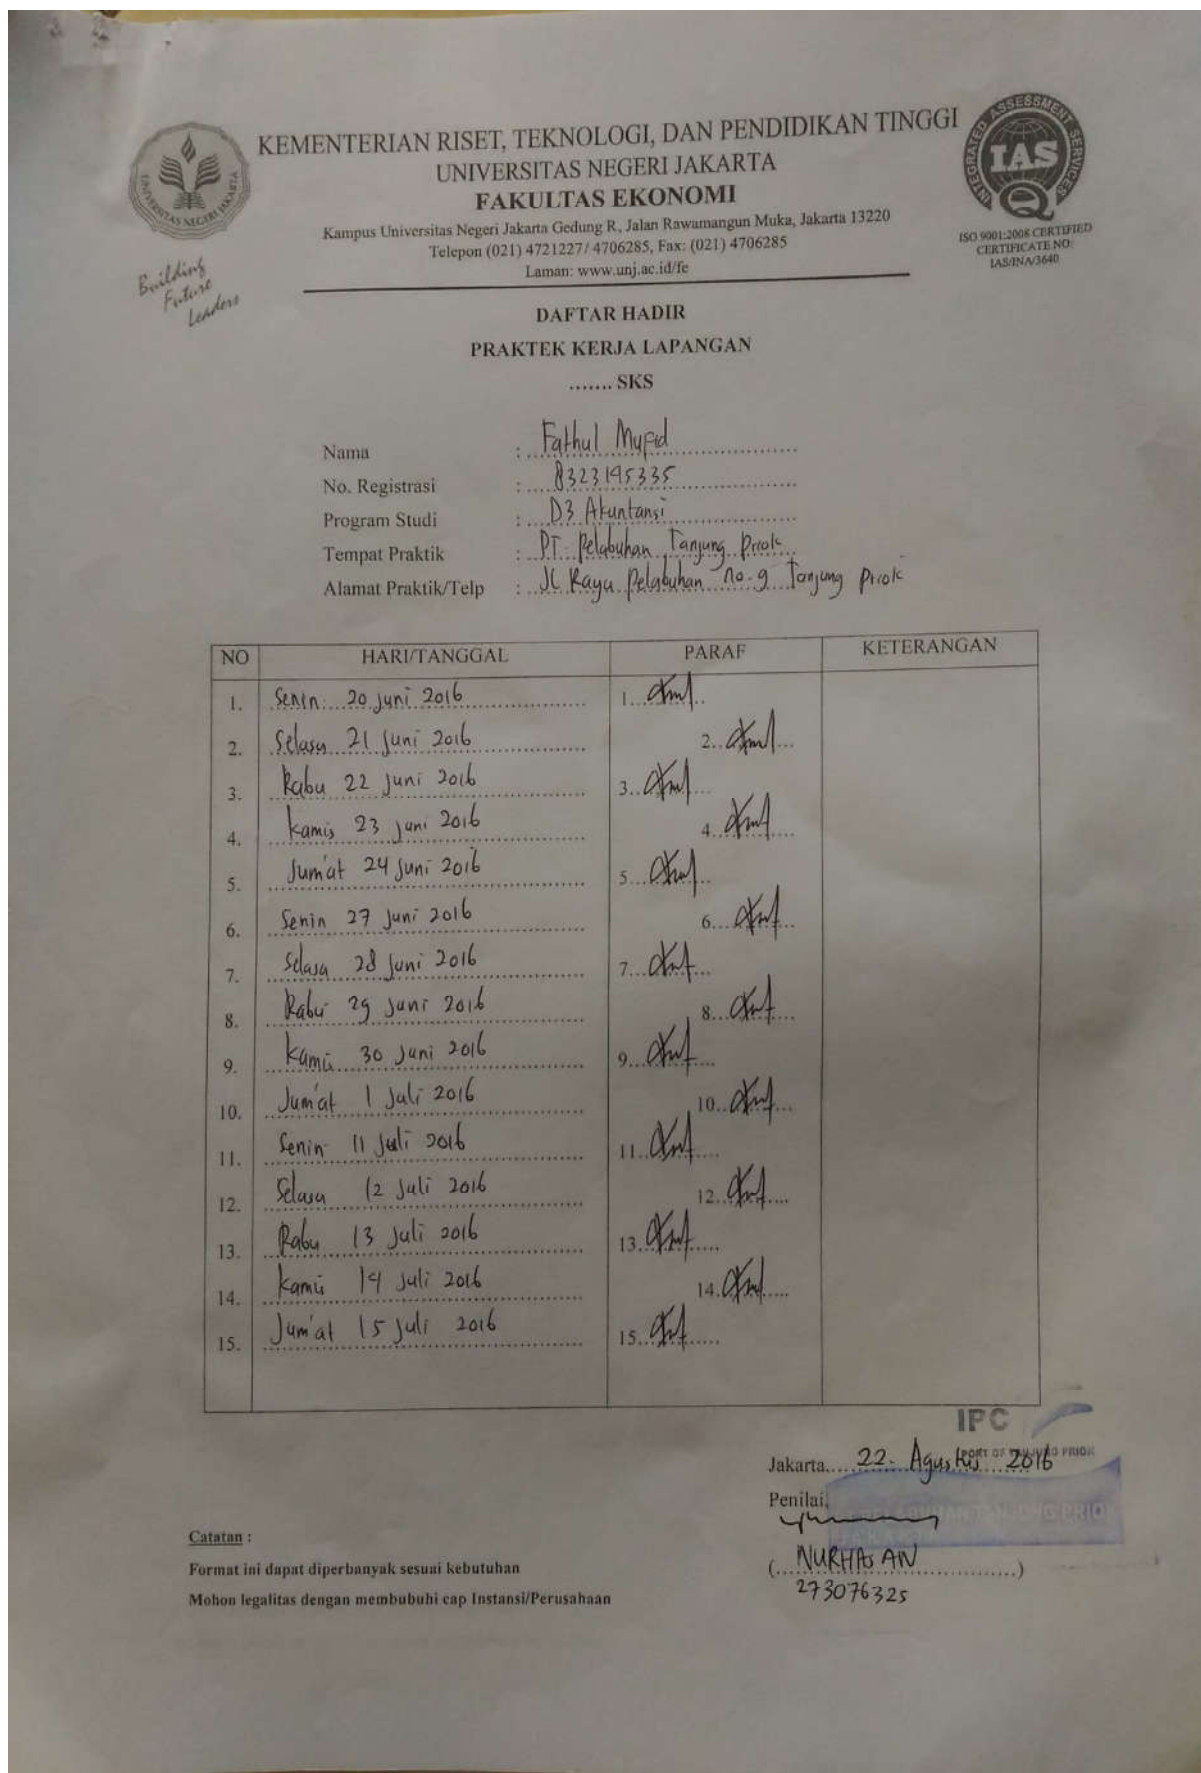 KEMENTERIAN RISET, TEKNOLOGI, DAN PENDIDIKAN TINGGI
UNIVERSITAS NEGERI JAKARTA
FAKULTAS EKONOMI
Kampus Universitas Negeri Jakarta Gedung R, Jalan Rawamangun Muka, Jakarta 13220
Telepon (021) 4721227/ 4706285, Fax: (021) 4706285
Laman: www.unj.ac.id/fe
UNIVERSITAS NEGERI JAKARTA
Building
Future
Leaders
INTEGRATED ASSESSMENT SERVICES
IAS
ISO 9001:2008 CERTIFIED
CERTIFICATE NO:
IAS/INA/3640
DAFTAR HADIR
PRAKTEK KERJA LAPANGAN
....... SKS
Nama : Fathul Mufid
No. Registrasi : 8323195335
Program Studi : D3 Akuntansi
Tempat Praktik : PT. Pelabuhan Tanjung Priok
Alamat Praktik/Telp : Jl Raya Pelabuhan no. 9 Tanjung Priok
NO HARI/TANGGAL PARAF KETERANGAN
1. Senin 20 Juni 2016 1.
2. Selasa 21 Juni 2016 2.
3. Rabu 22 Juni 2016 3.
4. Kamis 23 Juni 2016 4.
5. Jum'at 24 Juni 2016 5.
6. Senin 27 Juni 2016 6.
7. Selasa 28 Juni 2016 7.
8. Rabu 29 Juni 2016 8.
9. Kamis 30 Juni 2016 9.
10. Jum'at 1 Juli 2016 10.
11. Senin 11 Juli 2016 11.
12. Selasa 12 Juli 2016 12.
13. Rabu 13 Juli 2016 13.
14. Kamis 14 Juli 2016 14.
15. Jum'at 15 Juli 2016 15.
IPC
PORT OF TANJUNG PRIOK
Jakarta.... 22 Agustus 2016
Penilai,
(NURHASAN)
273076325
Catatan :
Format ini dapat diperbanyak sesuai kebutuhan
Mohon legalitas dengan membubuhi cap Instansi/Perusahaan